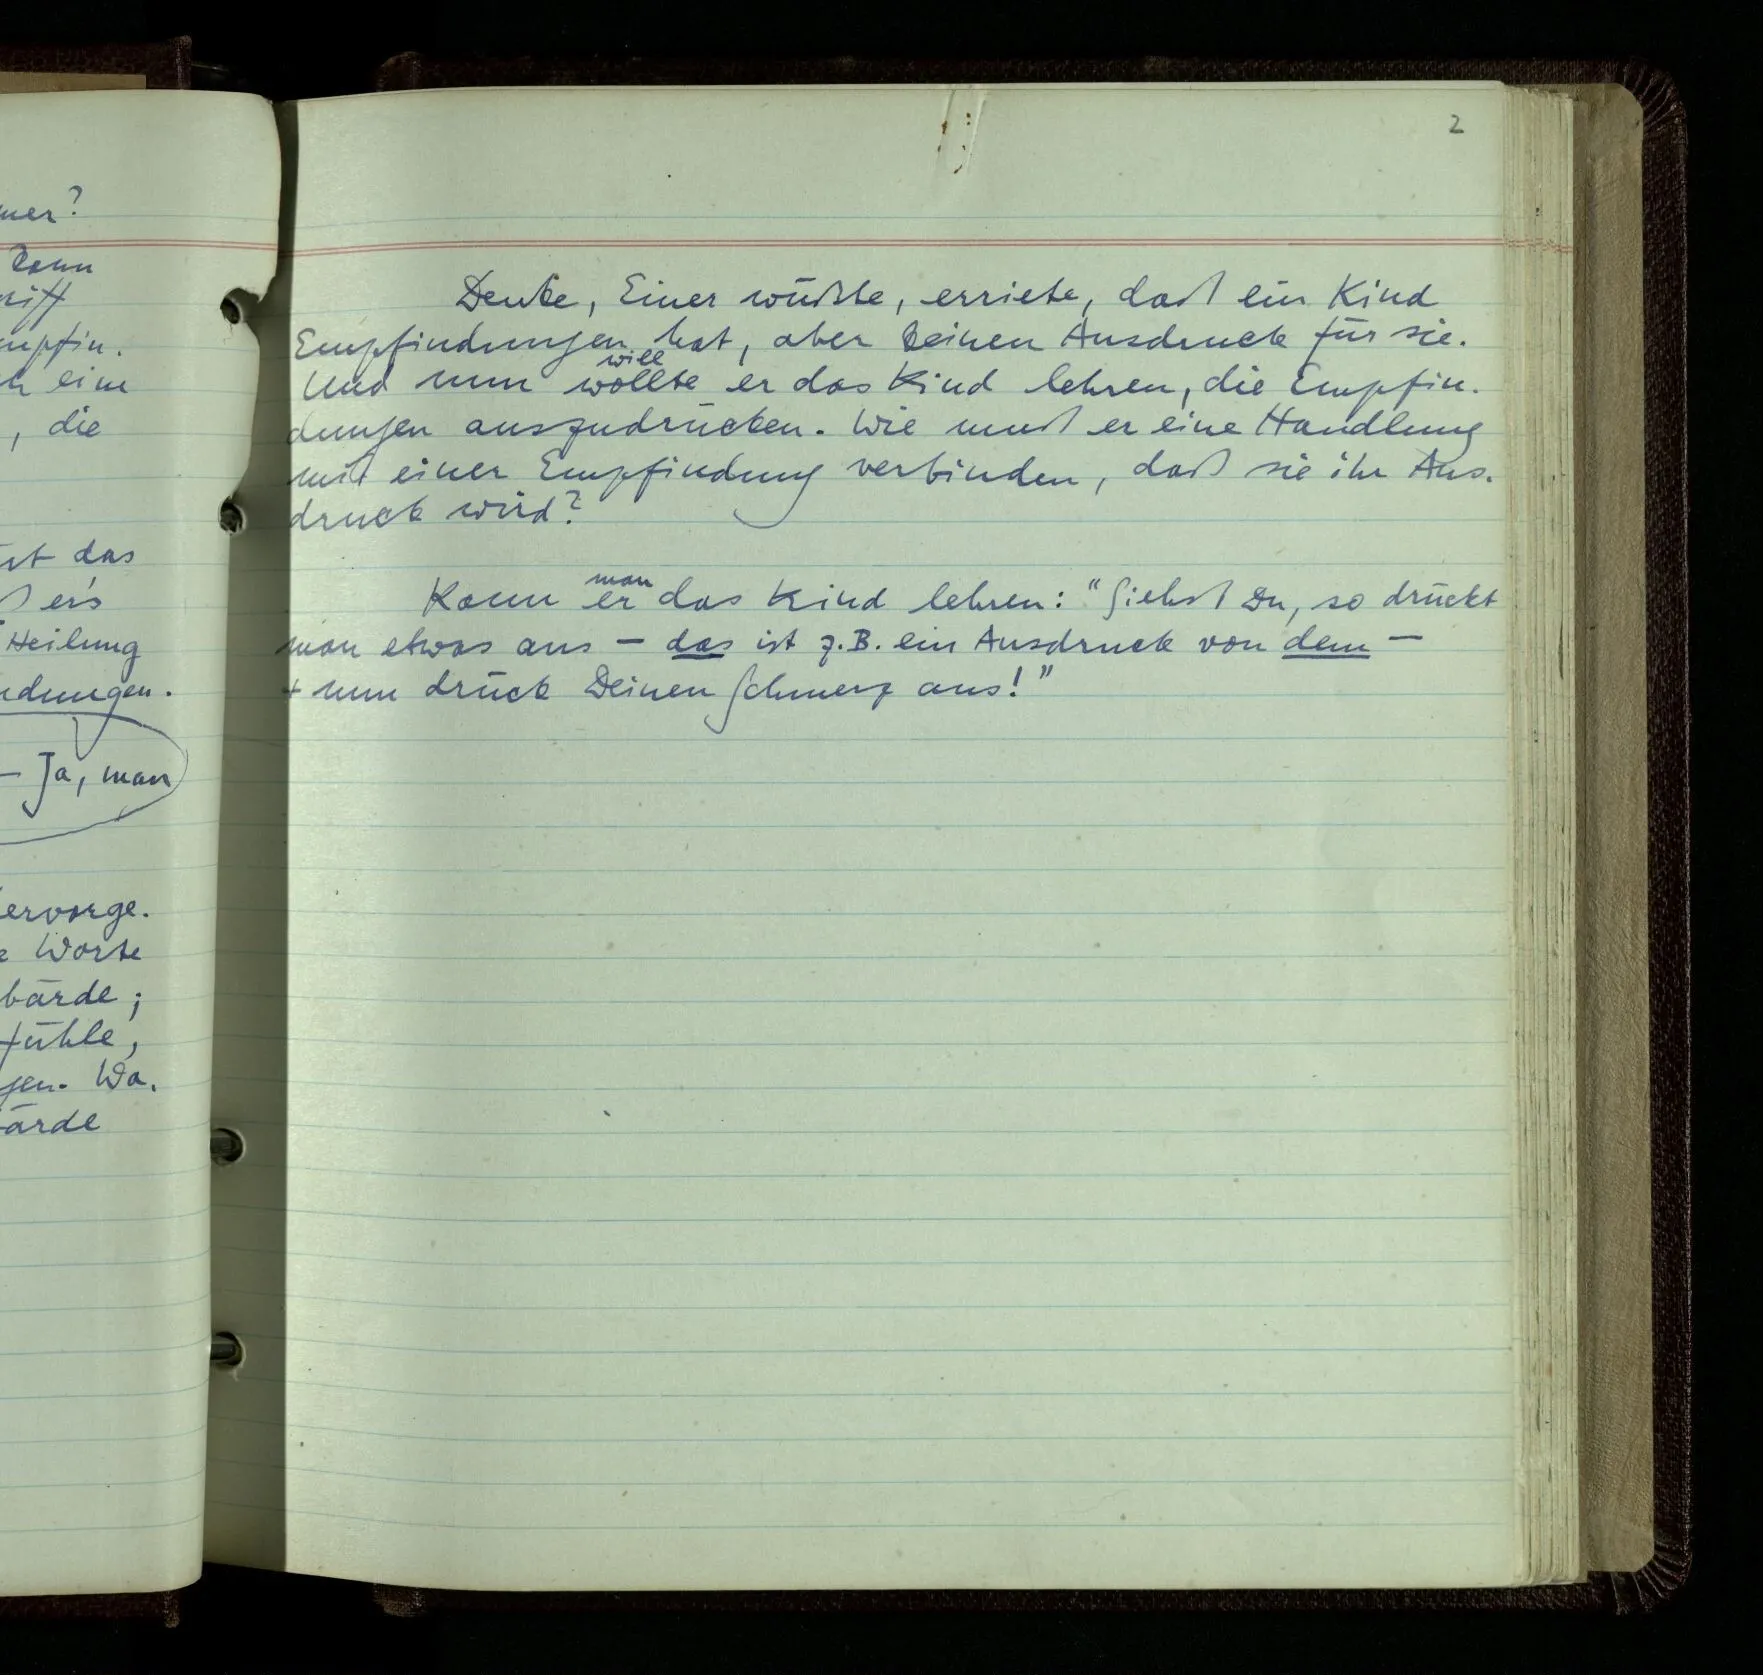 mer?
kann
riff
mpfin-
ch eine
, die
ist das
ß er's
Heilung
ndungen.
– Ja, man
ervorge-
e Worte
bärde;
fühle,
gen. Wa-
ärde
2
Denke, Einer wüßte, erriete, daß ein Kind
Empfindungen hat, aber keinen Ausdruck für sie.
will
Und nun wollte er das Kind lehren, die Empfin-
dungen auszudrücken. Wie muß er eine Handlung
mit einer Empfindung verbinden, daß sie ihr Aus-
druck wird?
man
Kann er das Kind lehren: "Siehst Du, so drückt
man etwas aus – das ist z.B. ein Ausdruck von dem –
+ nun drück Deinen Schmerz aus!"